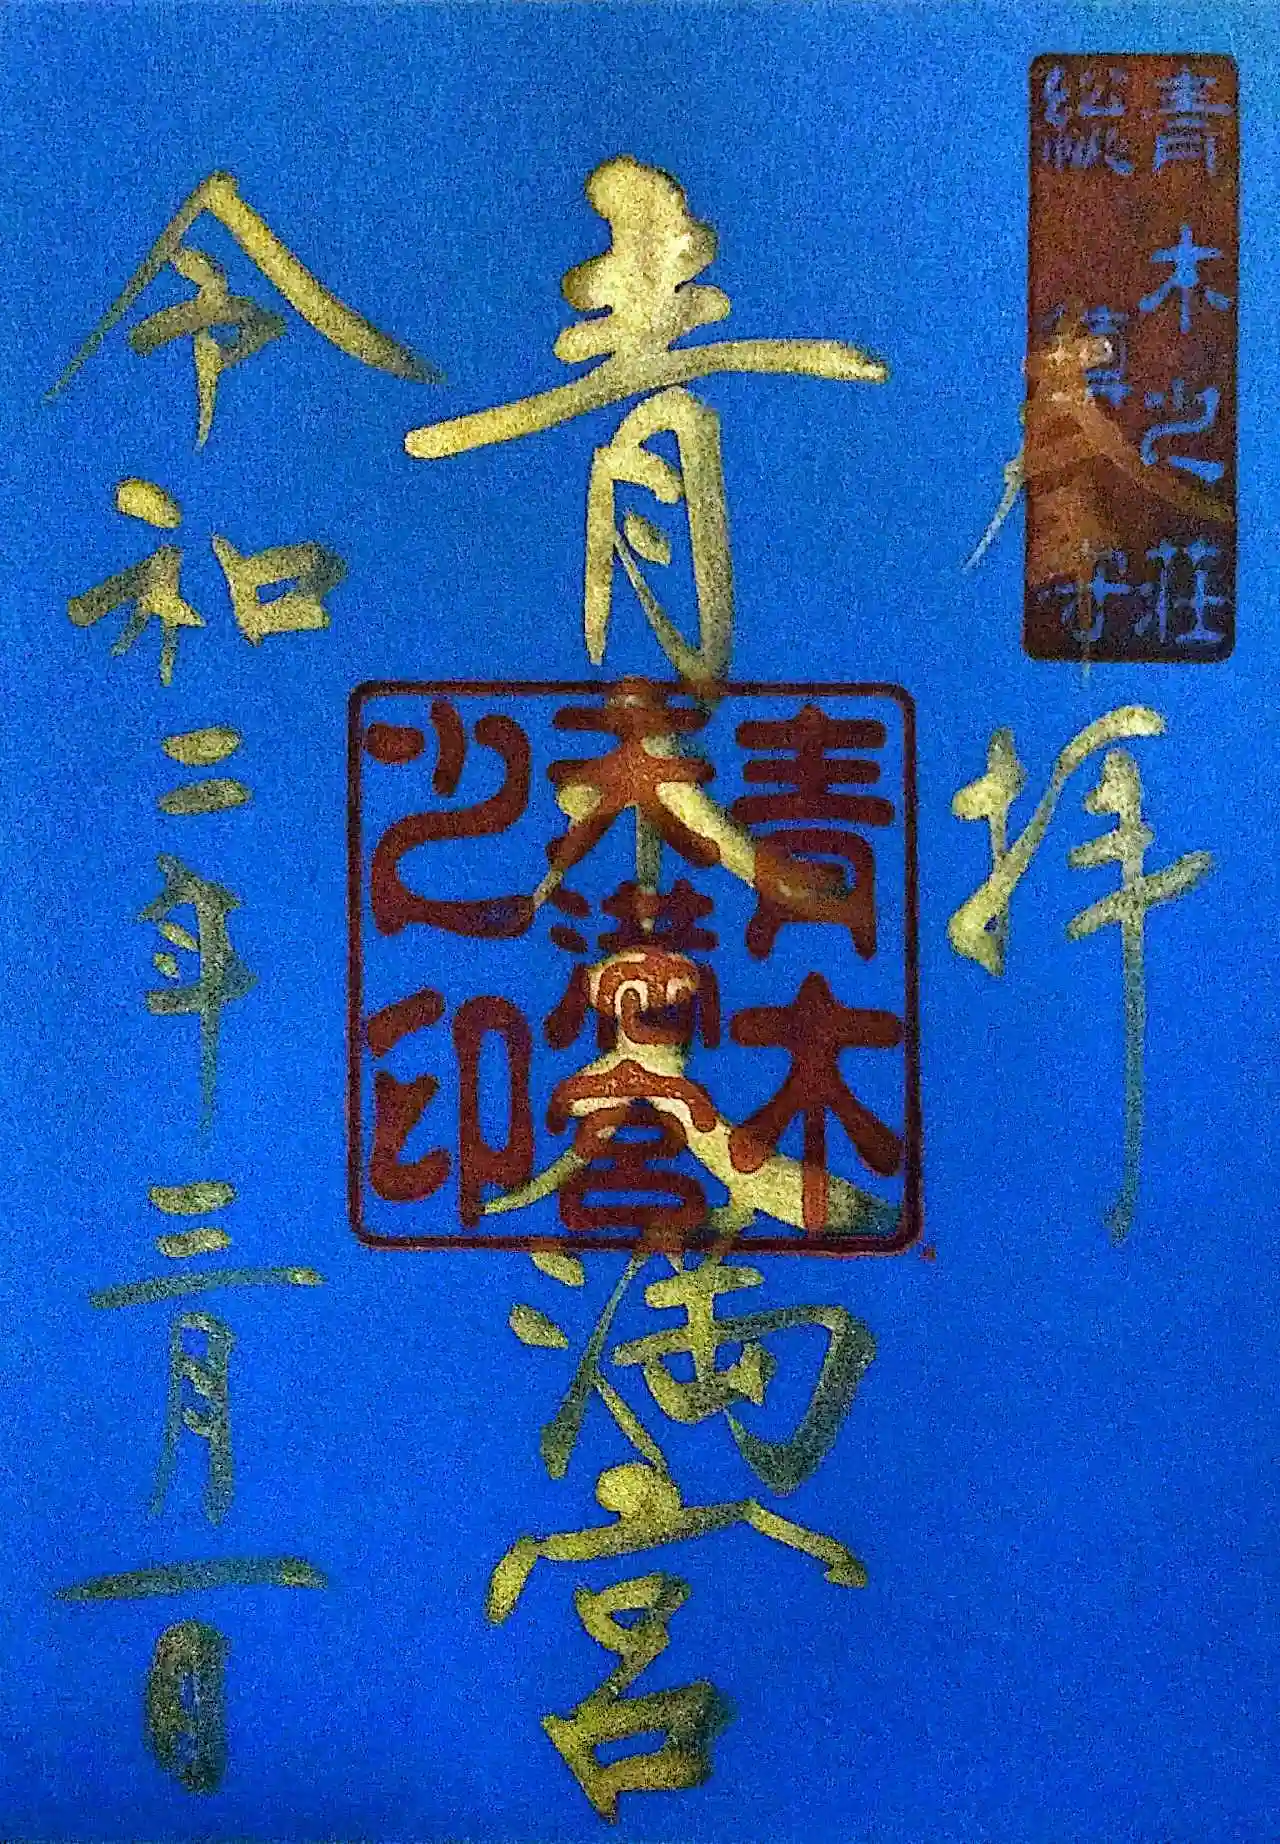 青木之荘
総鎮守
奉拝
青木天満宮
青木
天満宮
之印
令和二年三月一日